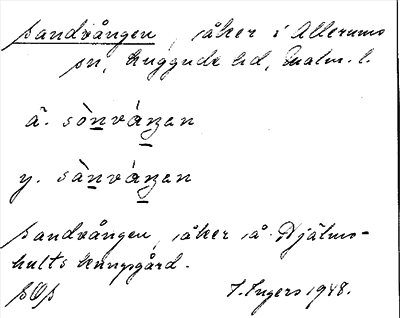 Sandvången, åker i Allerums
sn, Luggude hd, Malm. l.
ä. sònváŋen
y. sànváŋen
Sandvången, åker å Djälms-
hults kungsgård.
I. Ingers 1948.